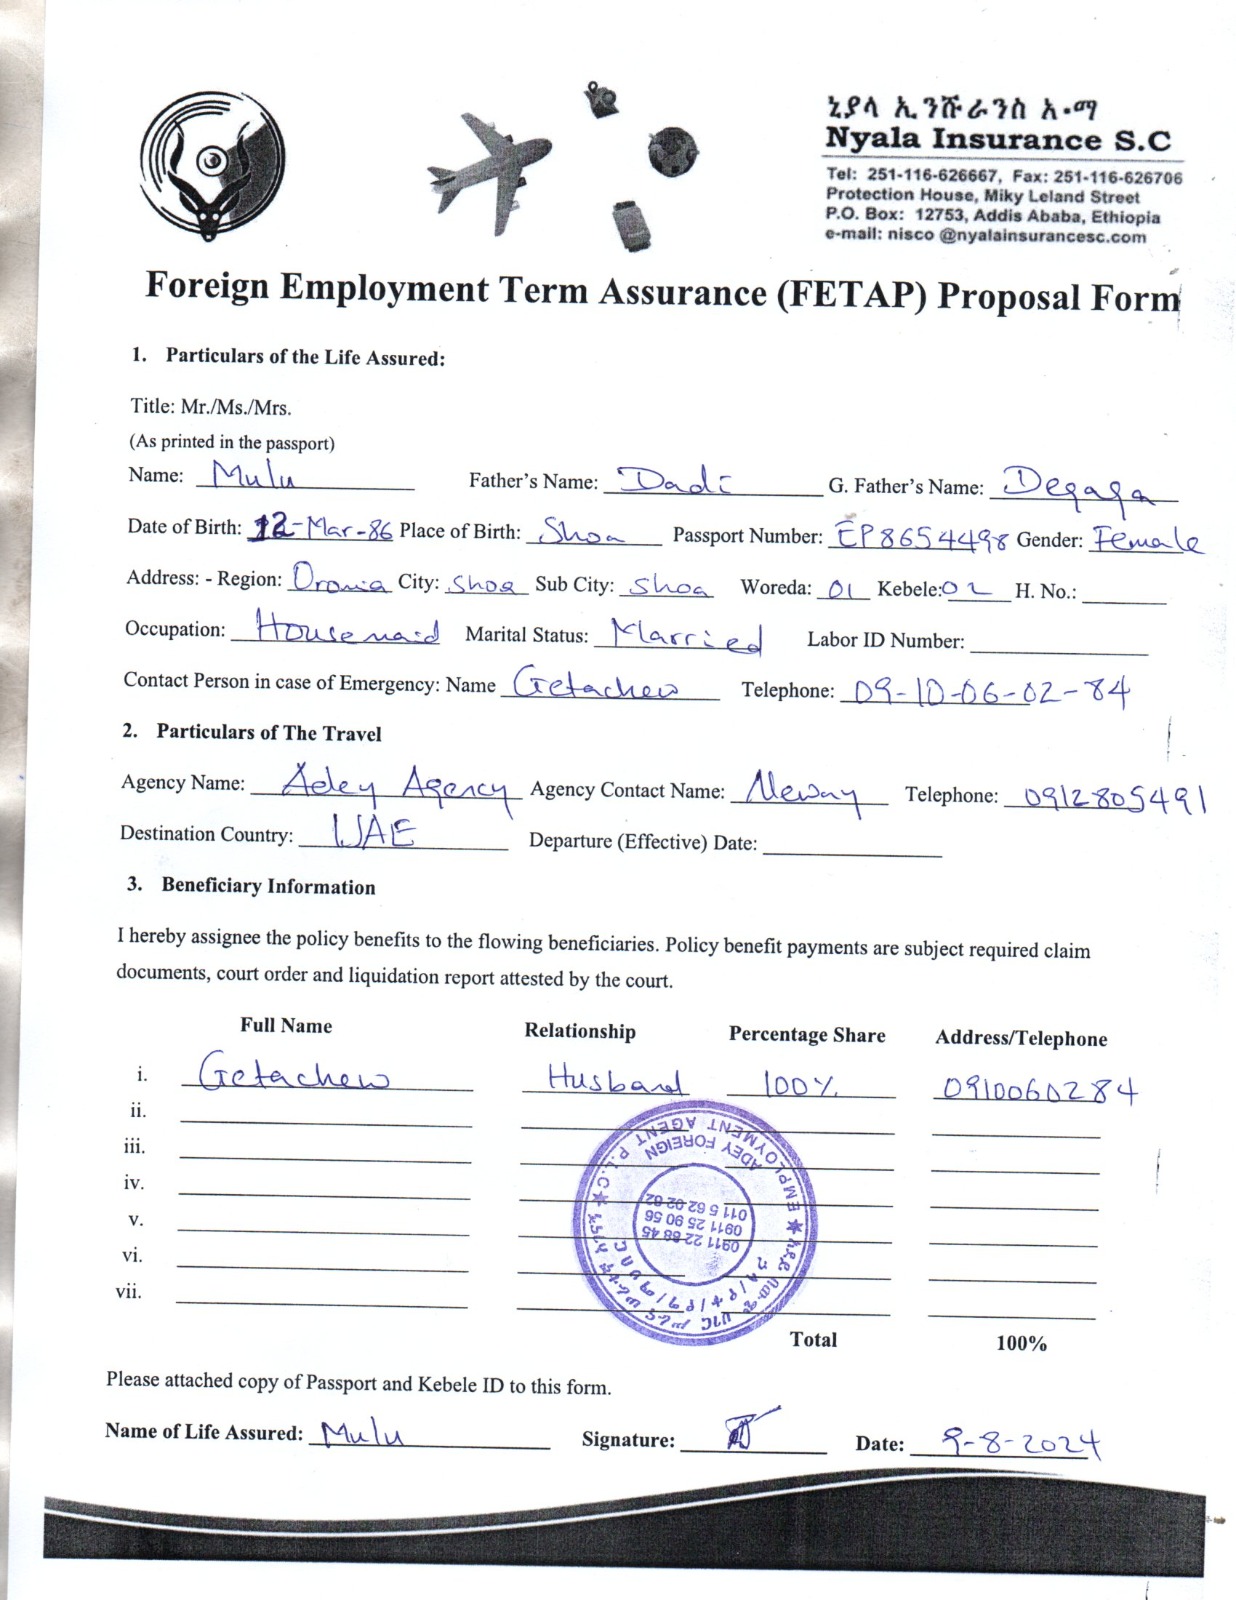 ኒያላ ኢንሹራንስ አ.ማ
Nyala Insurance S.C
Tel: 251-116-626667, Fax: 251-116-626706
Protection House, Miky Leland Street
P.O. Box: 12753, Addis Ababa, Ethiopia
e-mail: nisco @nyalainsurancesc.com
Foreign Employment Term Assurance (FETAP) Proposal Form
1. Particulars of the Life Assured:
Title: Mr./Ms./Mrs.
(As printed in the passport)
Name: Mulu Father's Name: Dadi G. Father's Name: Degaga
Date of Birth: 12-Mar-86 Place of Birth: Shoa Passport Number: EP8654498 Gender: Female
Address: - Region: Oromia City: Shoa Sub City: Shoa Woreda: 01 Kebele: 02 H. No.:
Occupation: Housemaid Marital Status: Married Labor ID Number:
Contact Person in case of Emergency: Name Getachew Telephone: 09-10-06-02-84
2. Particulars of The Travel
Agency Name: Adey Agency Agency Contact Name: Neway Telephone: 0912805491
Destination Country: UAE Departure (Effective) Date:
3. Beneficiary Information
I hereby assignee the policy benefits to the flowing beneficiaries. Policy benefit payments are subject required claim
documents, court order and liquidation report attested by the court.
Full Name Relationship Percentage Share Address/Telephone
i. Getachew Husband 100% 0910060284
ii.
iii.
iv.
v.
vi.
vii.
ADEY FOREIGN
EMPLOYMENT AGENT P.L.C
0911 22 88 45
0911 25 90 56
011 5 62 02 62
Total 100%
Please attached copy of Passport and Kebele ID to this form.
Name of Life Assured: Mulu Signature: Date: 9-8-2024